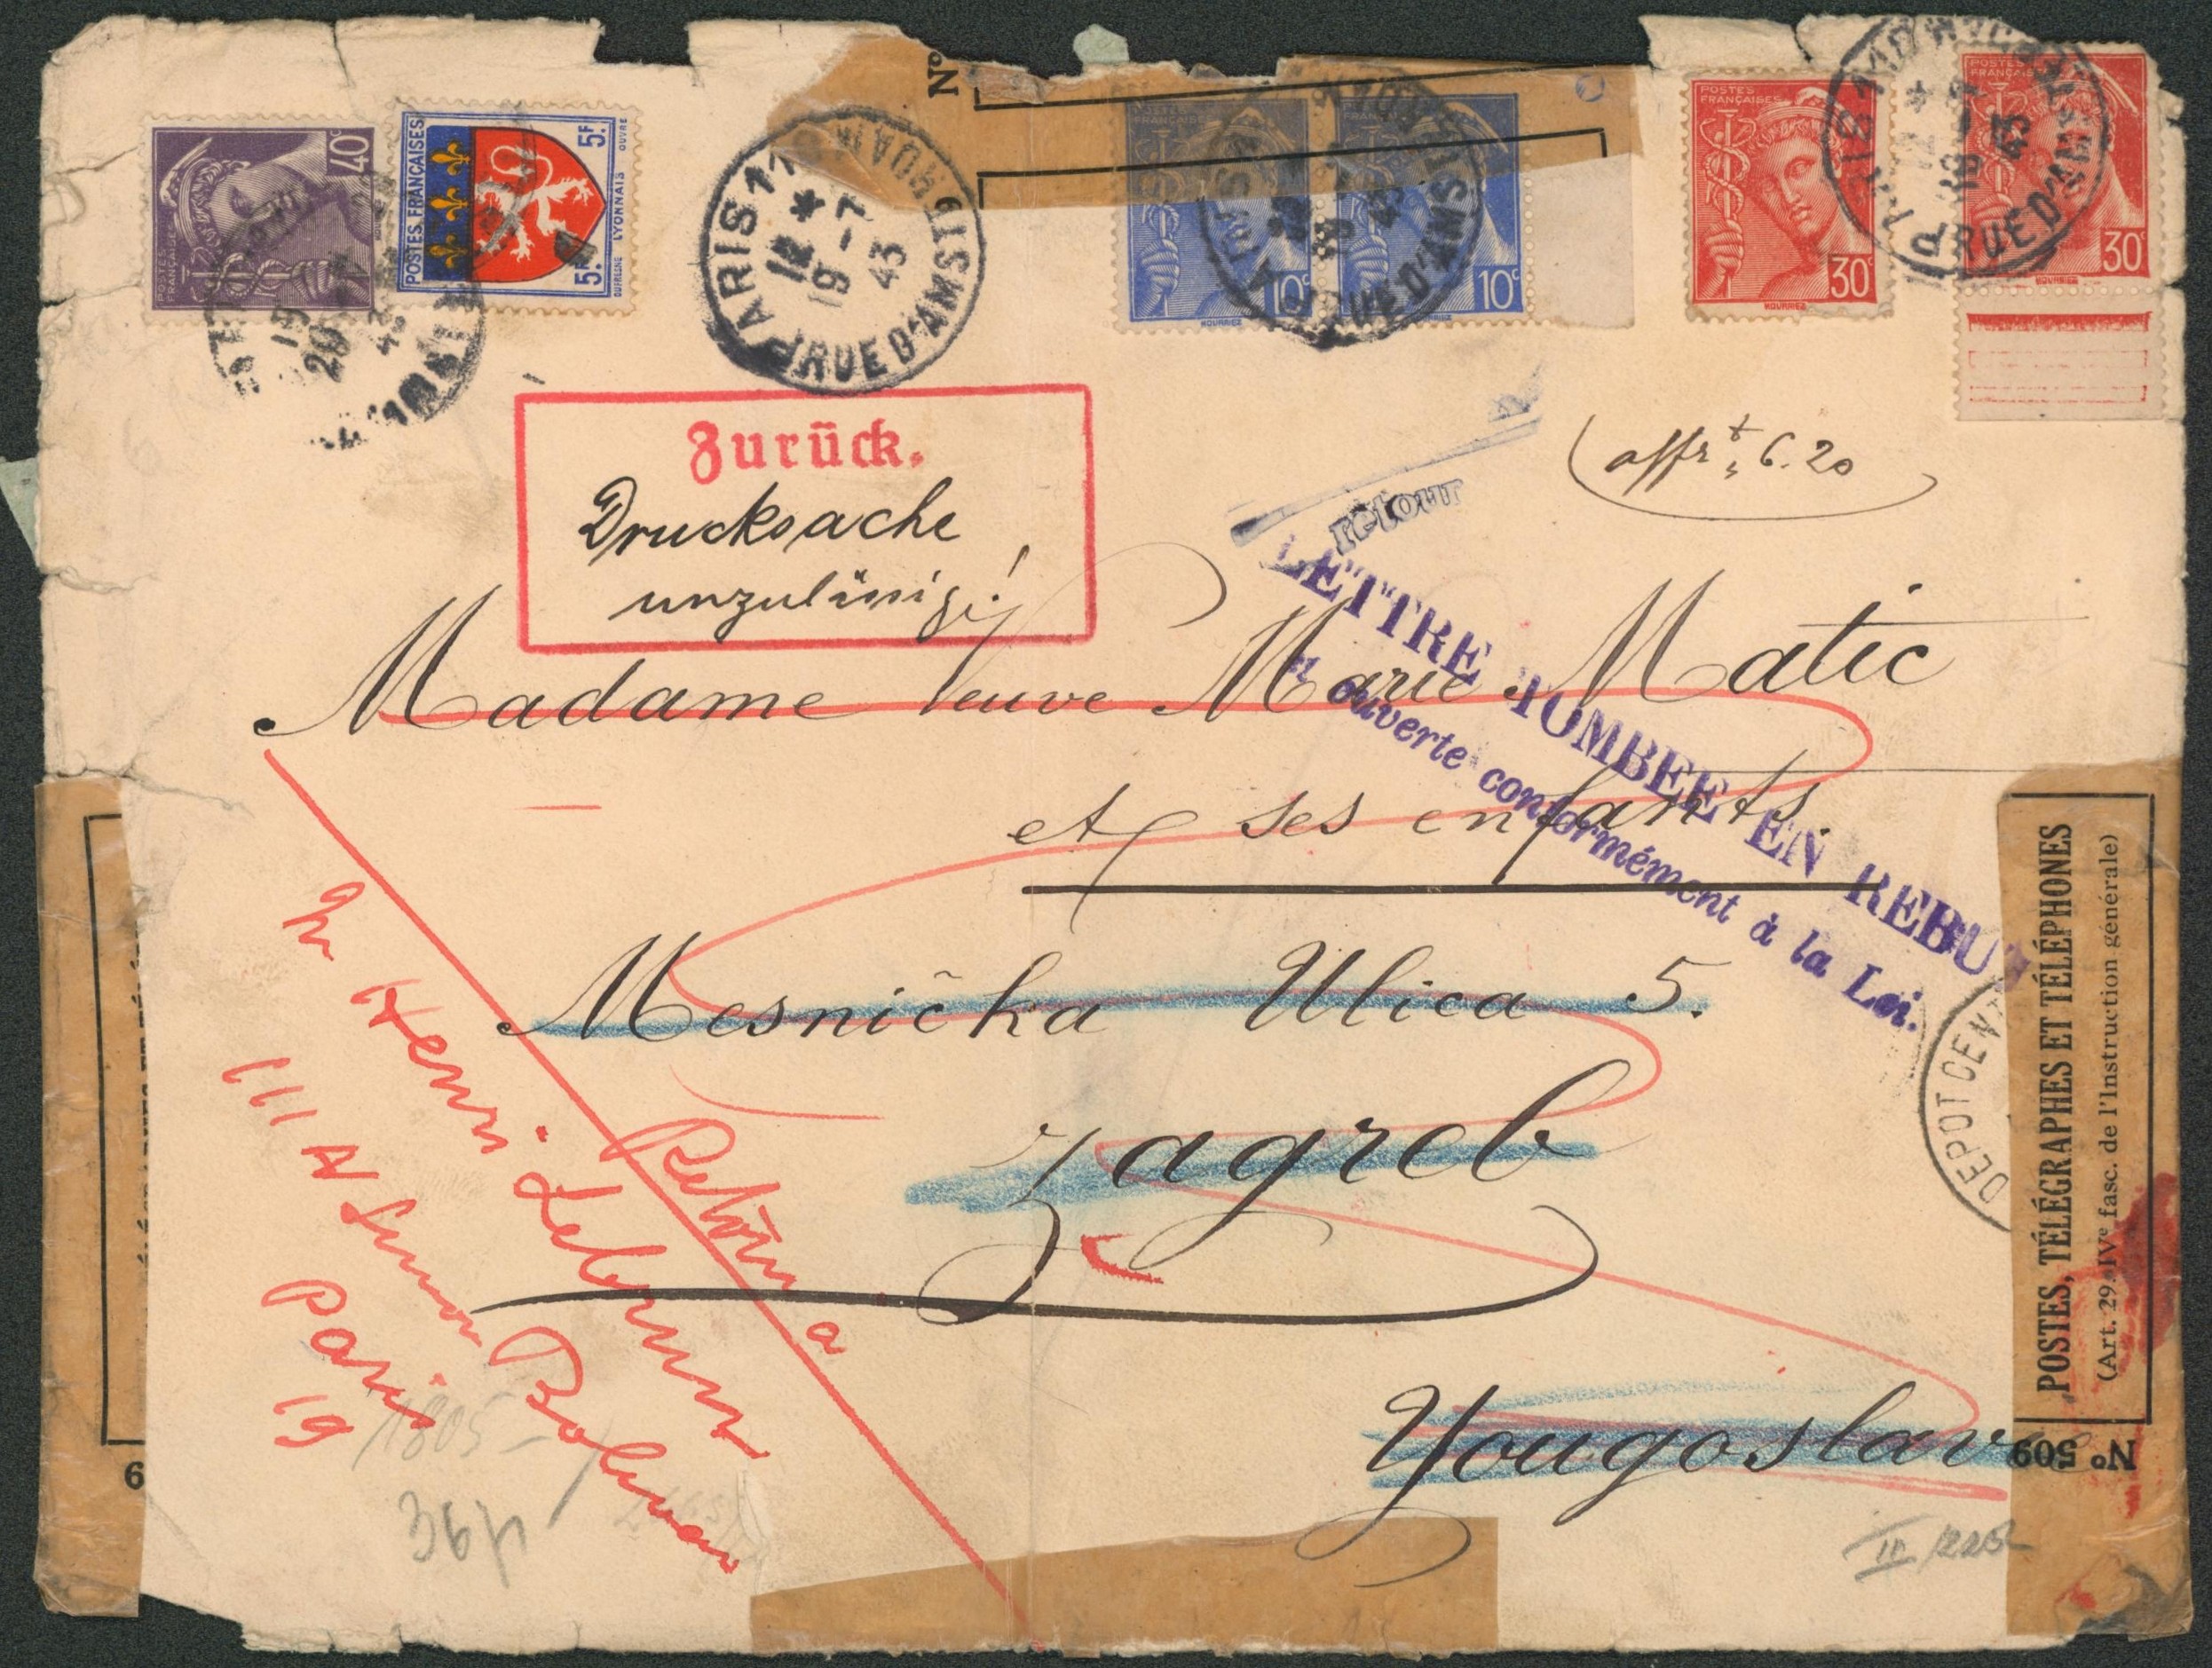 POSTES FRANÇAISES
40c
POSTES FRANÇAISES
5F.
5F.
LYONNAIS
PARIS 110
12 *
19 -7
43
RUE D'AMSTERDAM
No
POSTES FRANÇAISES
10c
10c
RUE D'AMST
POSTES FRANÇAISES
30c
POSTES FRANÇAISES
30c
RUE D'AMST
19
20
43
Zurück.
Drucksache
unzulässig!
affrt, 6.20
retour
LETTRE TOMBEE EN REBUT
et ouverte conformément à la Loi.
Madame Veuve Marie Matic
et ses enfants.
Mesnička Ulica 5.
Zagreb
Yougoslav
Retour a
Mr Henri
111
Paris
19
DEPOT CEN
POSTES, TÉLÉGRAPHES ET TÉLÉPHONES
(Art. 29. IVe fasc. de l'Instruction générale)
No 509
9
1805-